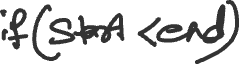 if(start <end)